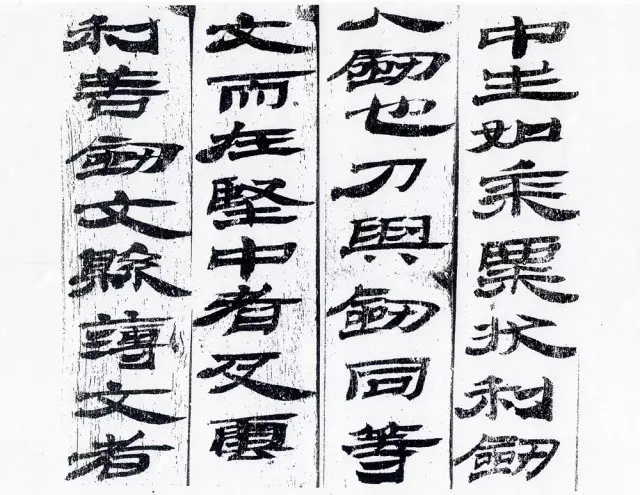 中生如黍粟狀利劒
人劒也刀與劒同等
文而在堅中者及雲
利善劒文縣薄文者